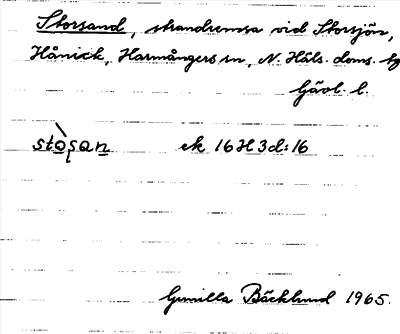 Storsand, strandremsa vid Storsjön,
Hånick, Harmångers sn, N. Häls. doms. hg
Gävl. l.
stosan ek 16H3d:16
Gunilla Bäcklund 1965.